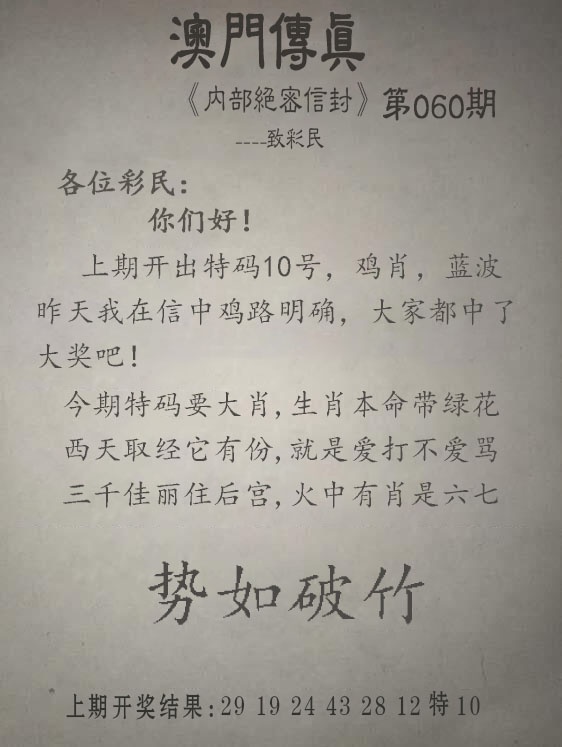 澳門傳真
《内部絕密信封》第060期
----致彩民
各位彩民:
你们好!
上期开出特码10号，鸡肖，蓝波
昨天我在信中鸡路明确，大家都中了
大奖吧!
今期特码要大肖,生肖本命带绿花
西天取经它有份,就是爱打不爱骂
三千佳丽住后宫,火中有肖是六七
势如破竹
上期开奖结果:29 19 24 43 28 12 特 10